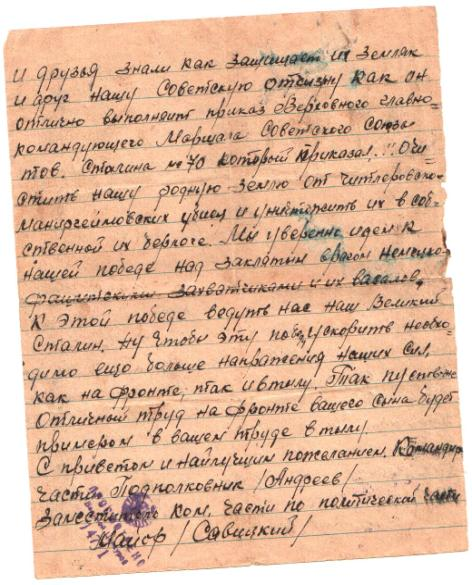 и друзья знали как защищает их земляк
и друг нашу Советскую отчизну как он
отлично выполняит приказ Верховного главно-
командующего Маршала Советского Союза
тов. Сталина № 70 который приказал: "Очи-
стить нашу родную землю от гитлеровско-
маниргеймовских убийц и уничтожить их в соб-
ственной их берлоге. Мы уверенно идем к
нашей победе над заклятым врагом немецко-
фашистскими захватчиками и их васалов,
К этой победе ведуть нас наш Великий
Сталин. Ну чтобы эту победу ускорить необхо-
димо ещо больше напряжения наших сил,
как на фронте, так и втылу. Так пусть же
Отличный труд на фронте вашего сына будет
примером в вашем труде в тылу
С приветом и найлучшим пожеланием. Командир
части Подполковник /Андреев/
Заместитель ком. части по политической части
Майор /Савицкий/